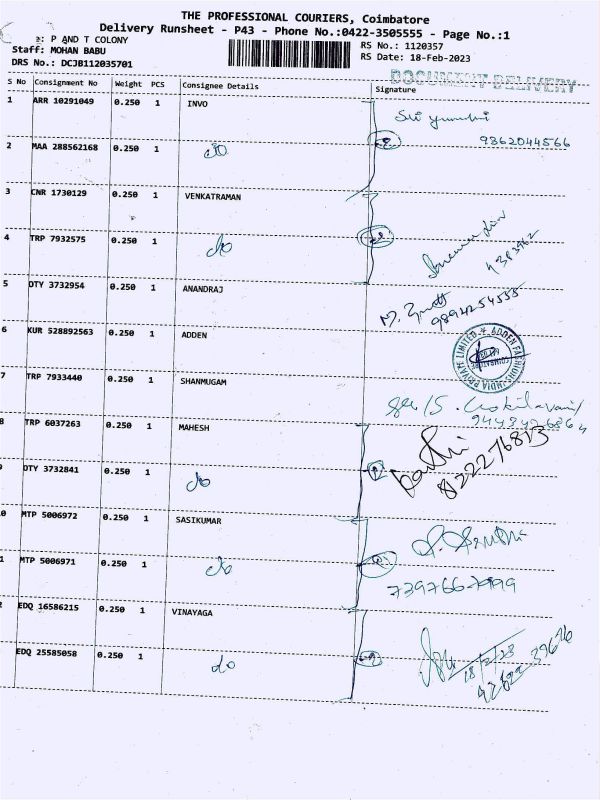 THE PROFESSIONAL COURIERS, Coimbatore
Delivery Runsheet - P43 - Phone No.:0422-3505555 - Page No.:1
: P AND T COLONY
Staff: MOHAN BABU
RS No.: 1120357
DRS No.: DCJB112035701
RS Date: 18-Feb-2023
DOCUMENT DELIVERY
S No Consignment No Weight PCS Consignee Details Signature
1 ARR 10291049 0.250 1 INVO
9362044566
2 MAA 288562168 0.250 1 do
3 CNR 1730129 0.250 1 VENKATRAMAN
4 TRP 7932575 0.250 1 do
5 OTY 3732954 0.250 1 ANANDRAJ
9894254555
6 KUR 528892563 0.250 1 ADDEN
7 TRP 7933440 0.250 1 SHANMUGAM
8 TRP 6037263 0.250 1 MAHESH
8122276813
OTY 3732841 0.250 1 do
0 MTP 5006972 0.250 1 SASIKUMAR
1 MTP 5006971 0.250 1 do
2 EDQ 16586215 0.250 1 VINAYAGA
EDQ 25585058 0.250 1 do
18/2/23